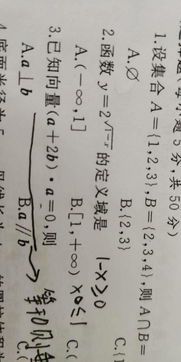 小题5分,共50分)
1.设集合A={1,2,3},B={2,3,4},则A∩B=
A.∅ B.{2,3} C.{
2.函数y=2^√(1-x)的定义域是 1-x≥0
A.(-∞,1] B.[1,+∞) x≤1 C.(
3.已知向量(a+2b)·a=0,则
A.a⊥b B.a∥b